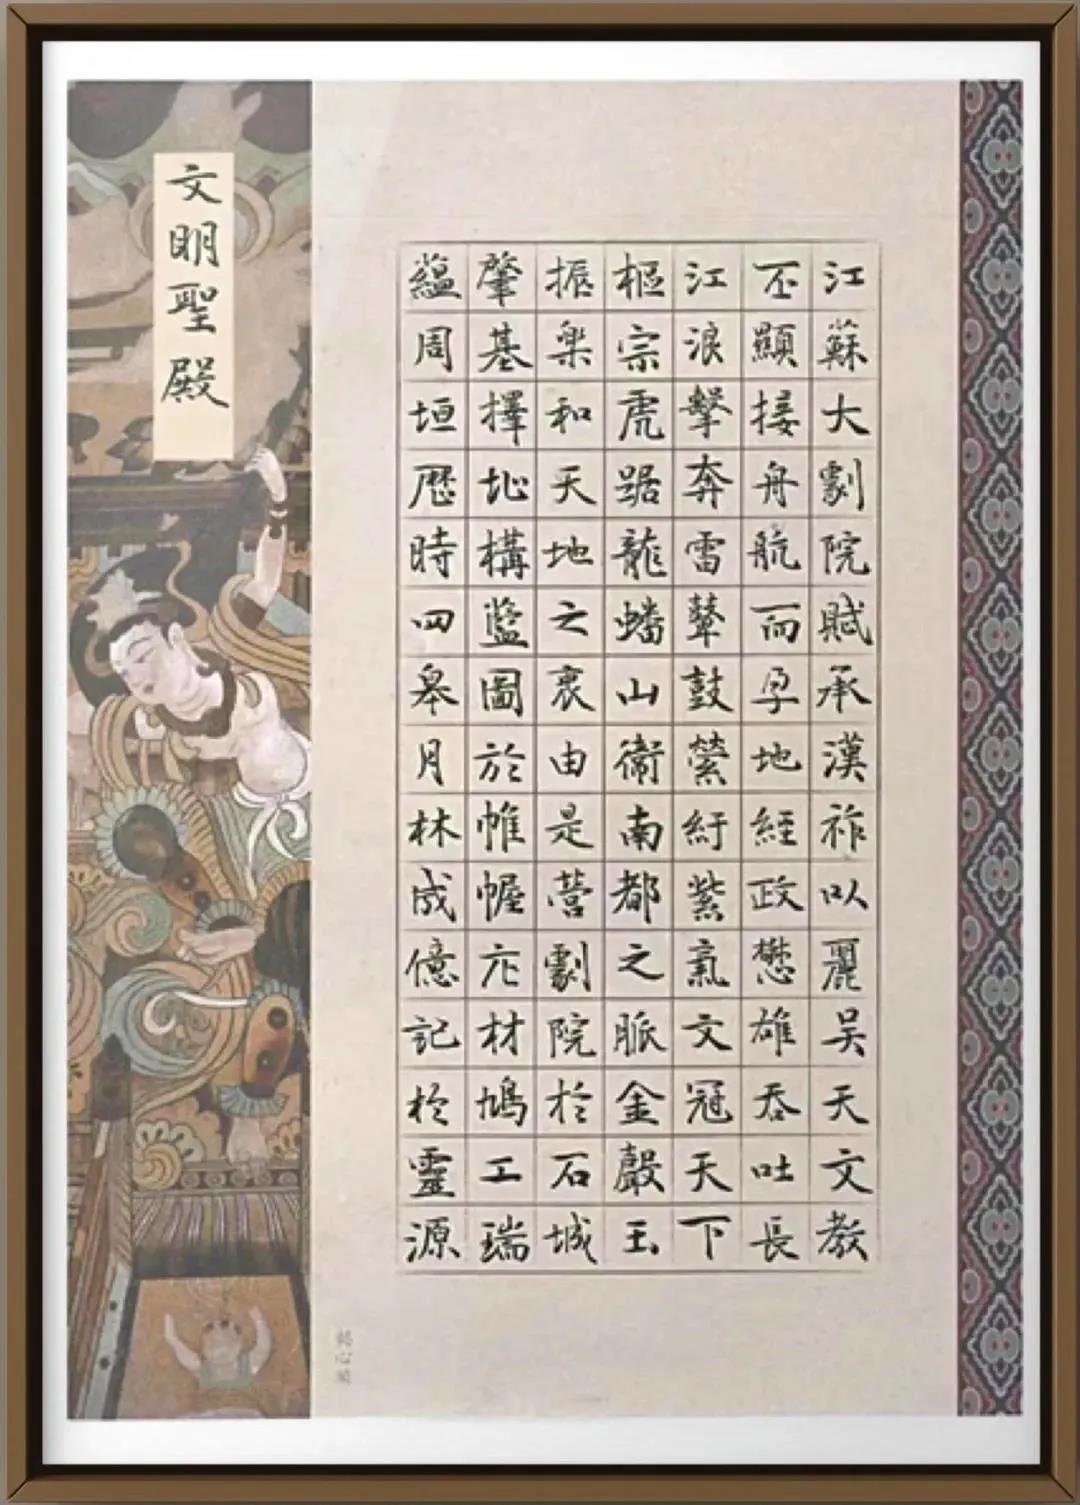 江蘇大劇院賦承漢祚以麗吴天文教
丕顯接舟航而孕地經政懋雄吞吐長
江浪擊奔雷鼙鼓縈紆紫氣文冠天下
樞宗虎踞龍蟠山衛南都之脈金聲玉
振樂和天地之衷由是營劇院於石城
肇基擇址構藍圖於帷幄庀材鳩工瑞
蘊周垣歷時四皋月林成億記於靈源
文明聖殿